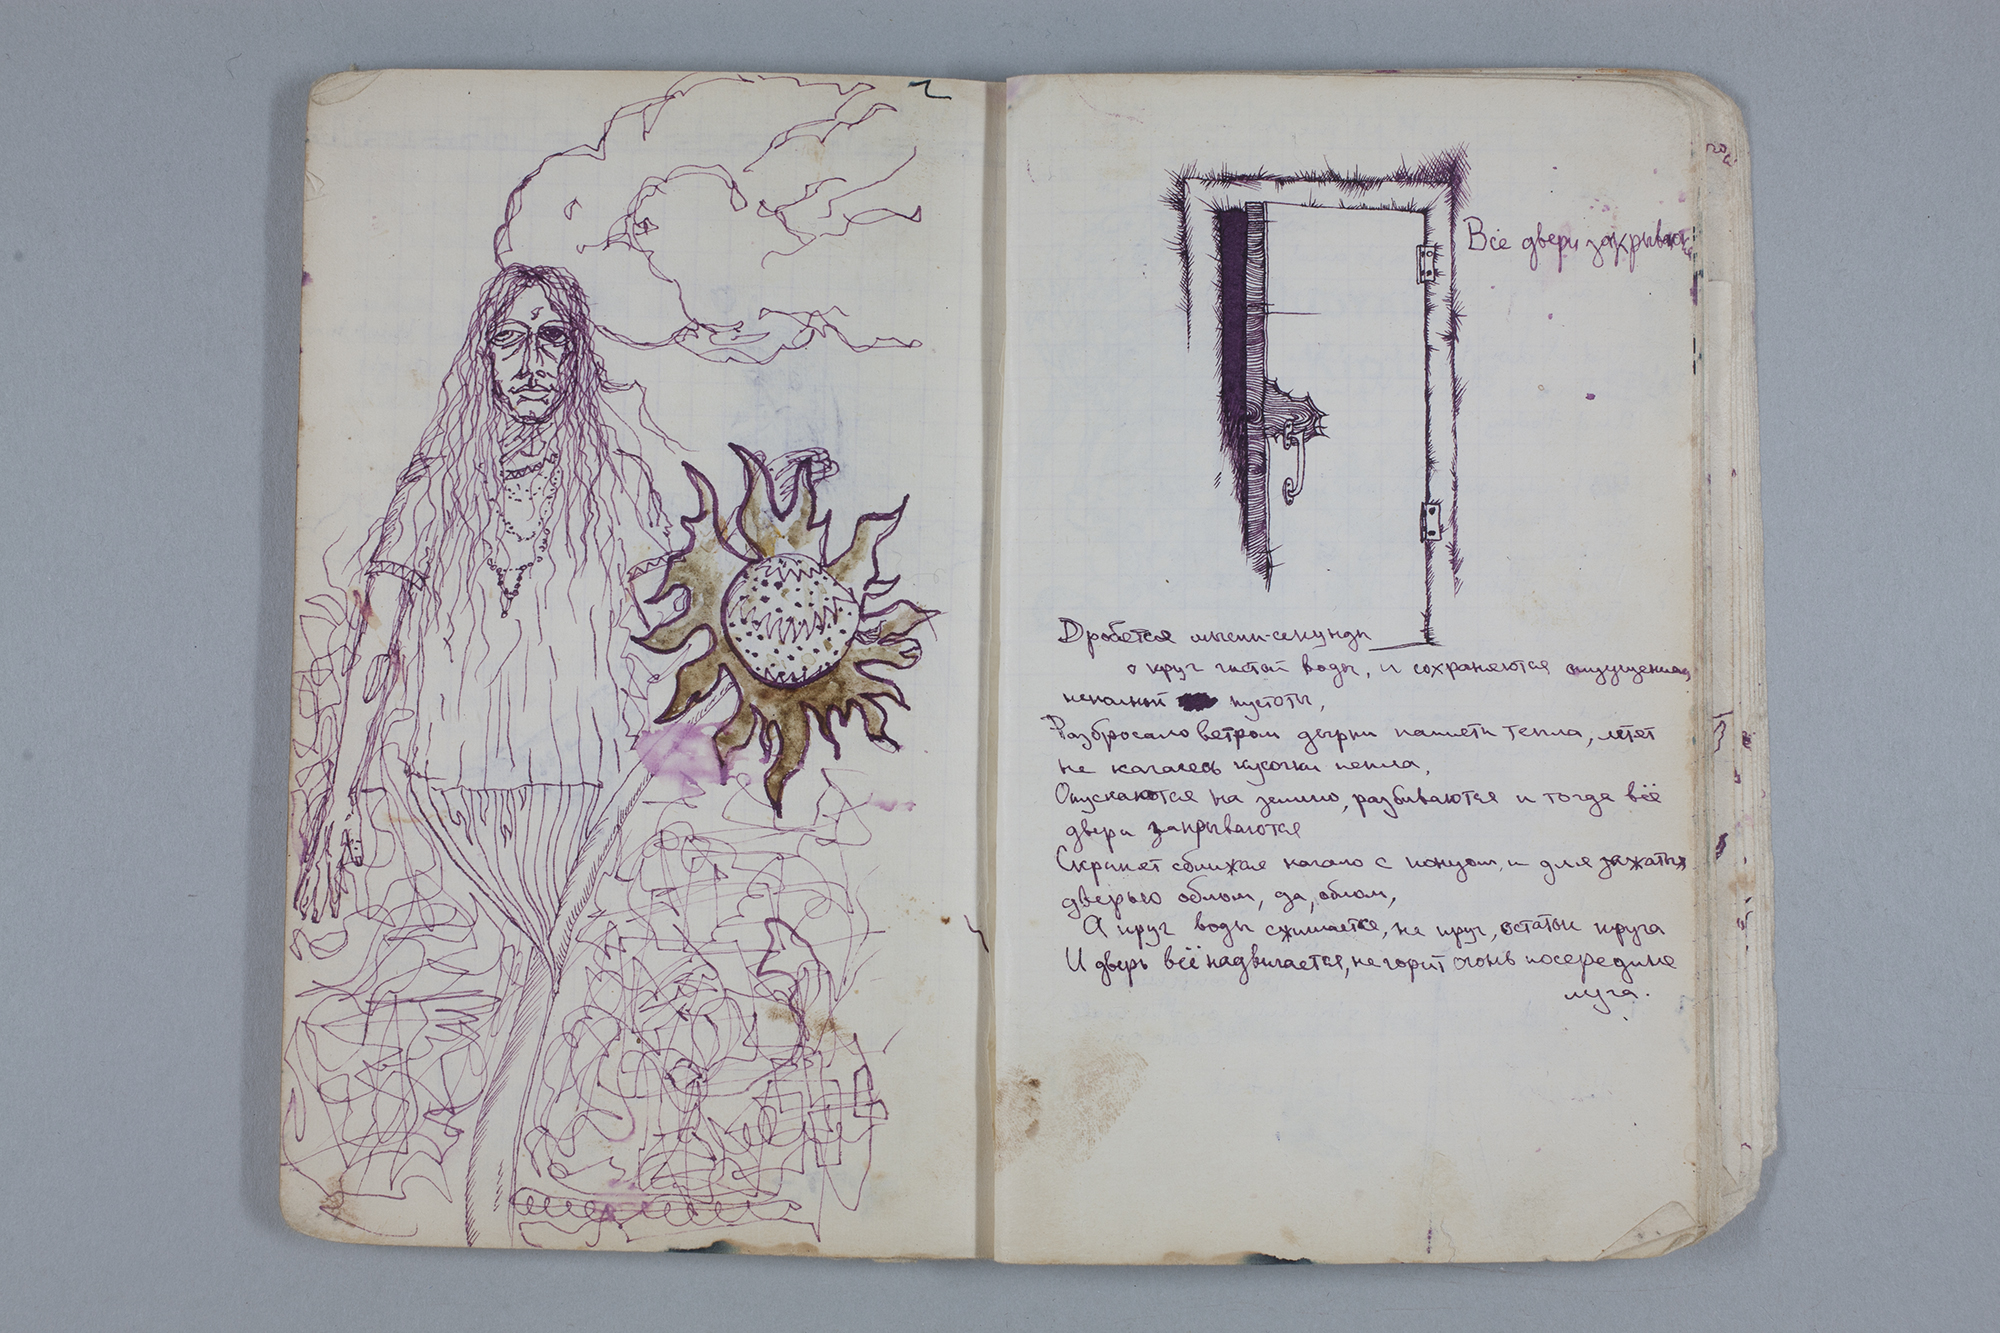 Все двери закрываются
Дробятся мысли-секунды
о круг чистой воды, и сохраняются ощущения
неполной пустоты,
Разбросало ветром дырки памяти тепла, летят
не касаясь кусочки пепла,
Опускаются на землю, разбиваются и тогда всё
двери закрываются
Скрипят сближая начало с концом, и для зажатых
дверью облом, да, облом,
А круг воды сжимается, не круг, остатки круга
И дверь всё надвигается, не горит огонь посередине
луга.